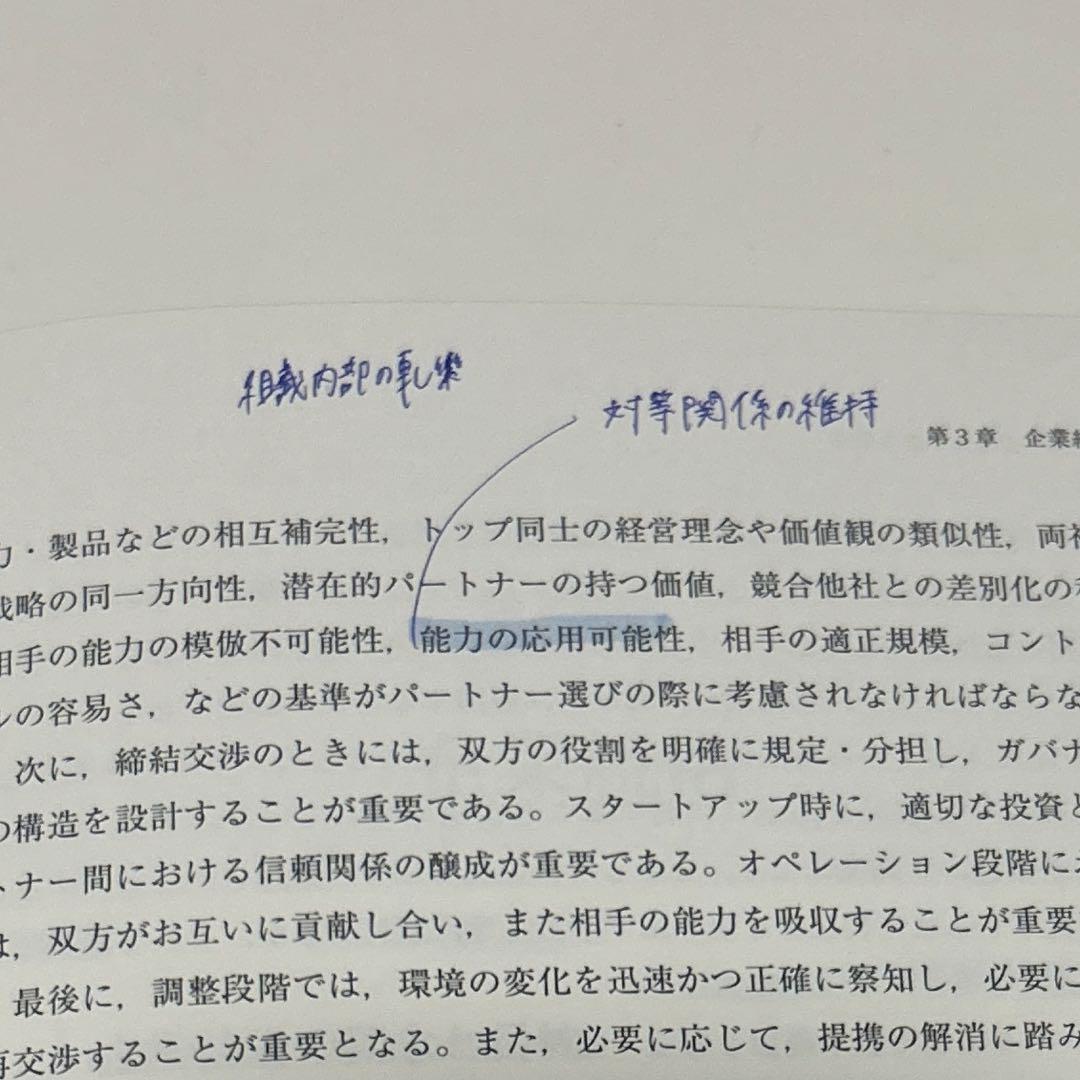 組織内部の軋轢
対等関係の維持
第3章 企業
力・製品などの相互補完性，トップ同士の経営理念や価値観の類似性，両社
戦略の同一方向性，潜在的パートナーの持つ価値，競合他社との差別化の
相手の能力の模倣不可能性，能力の応用可能性，相手の適正規模，コント
ルの容易さ，などの基準がパートナー選びの際に考慮されなければならな
次に，締結交渉のときには，双方の役割を明確に規定・分担し，ガバナ
の構造を設計することが重要である。スタートアップ時に，適切な投資と
トナー間における信頼関係の醸成が重要である。オペレーション段階に
は，双方がお互いに貢献し合い，また相手の能力を吸収することが重要
最後に，調整段階では，環境の変化を迅速かつ正確に察知し，必要に
再交渉することが重要となる。また，必要に応じて，提携の解消に踏み